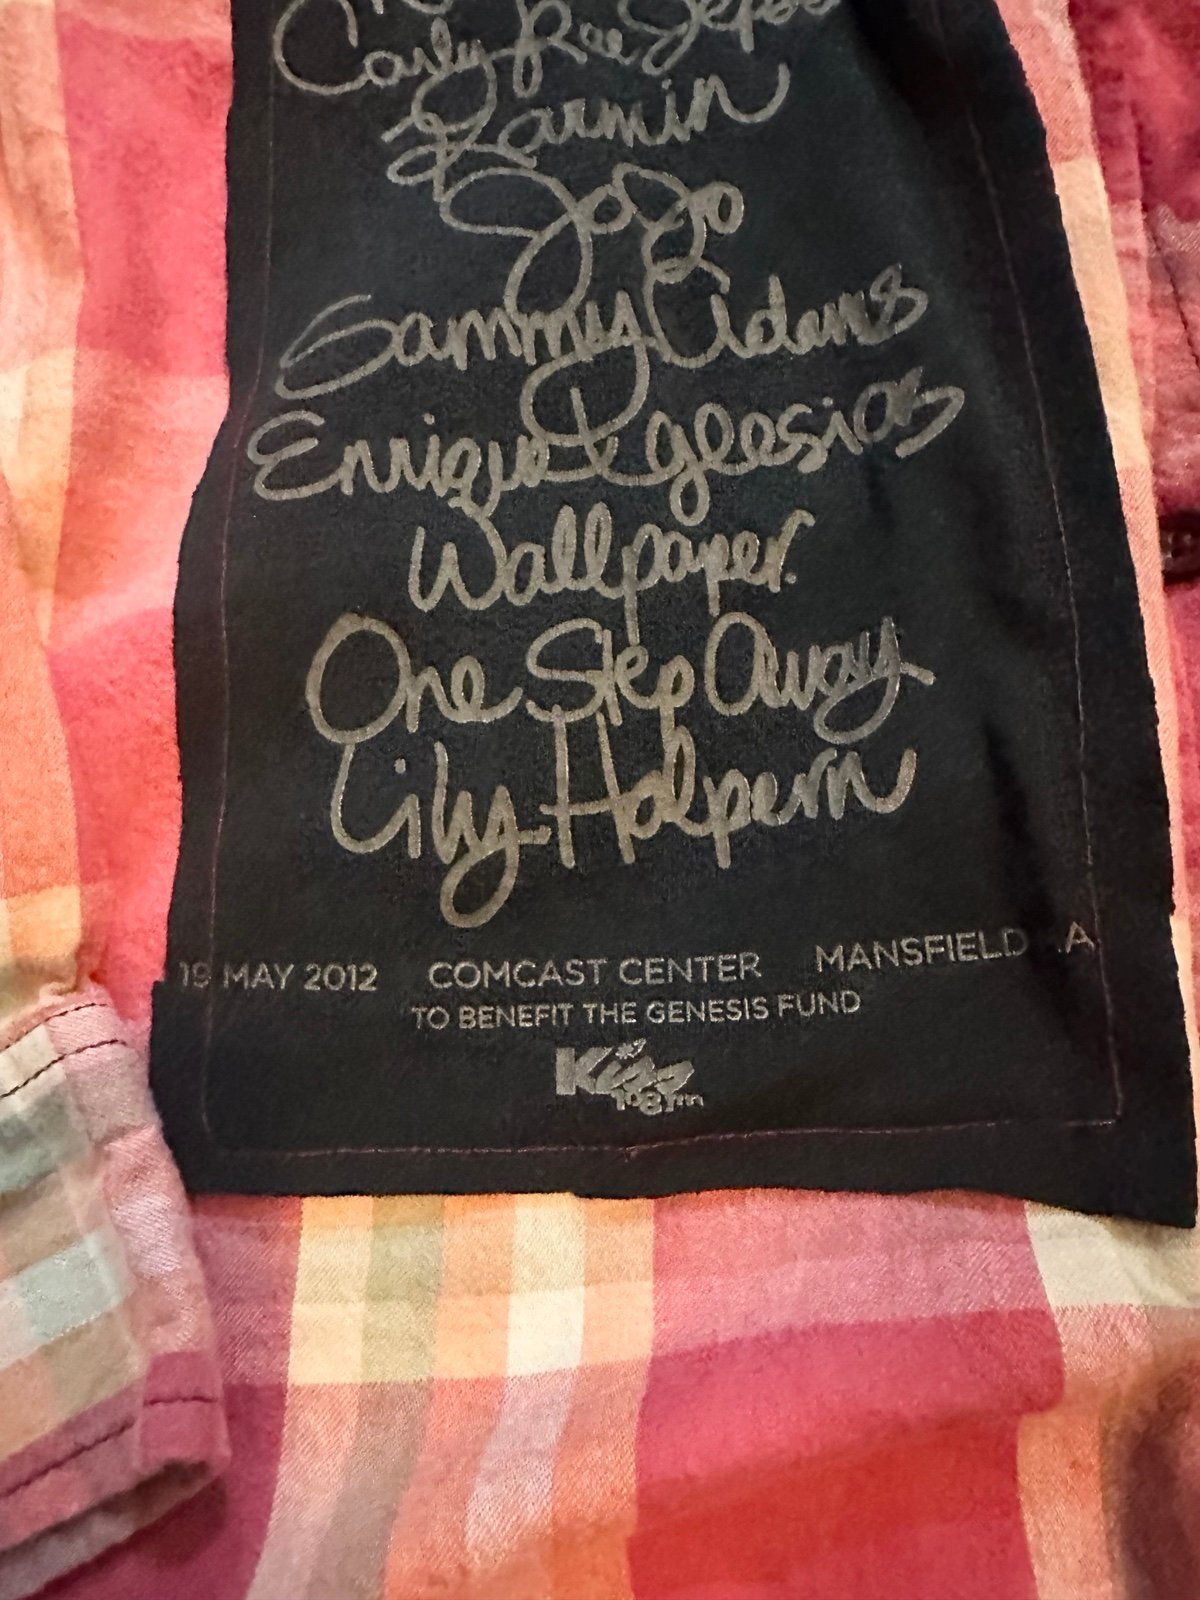 Carly Rae Jepsen
Karmin
JoJo
Sammy Adams
Enrique Iglesias
Wallpaper.
One Step Away
Lily Halpern
19 MAY 2012 COMCAST CENTER MANSFIELD MA
TO BENEFIT THE GENESIS FUND
Kiss
108 fm